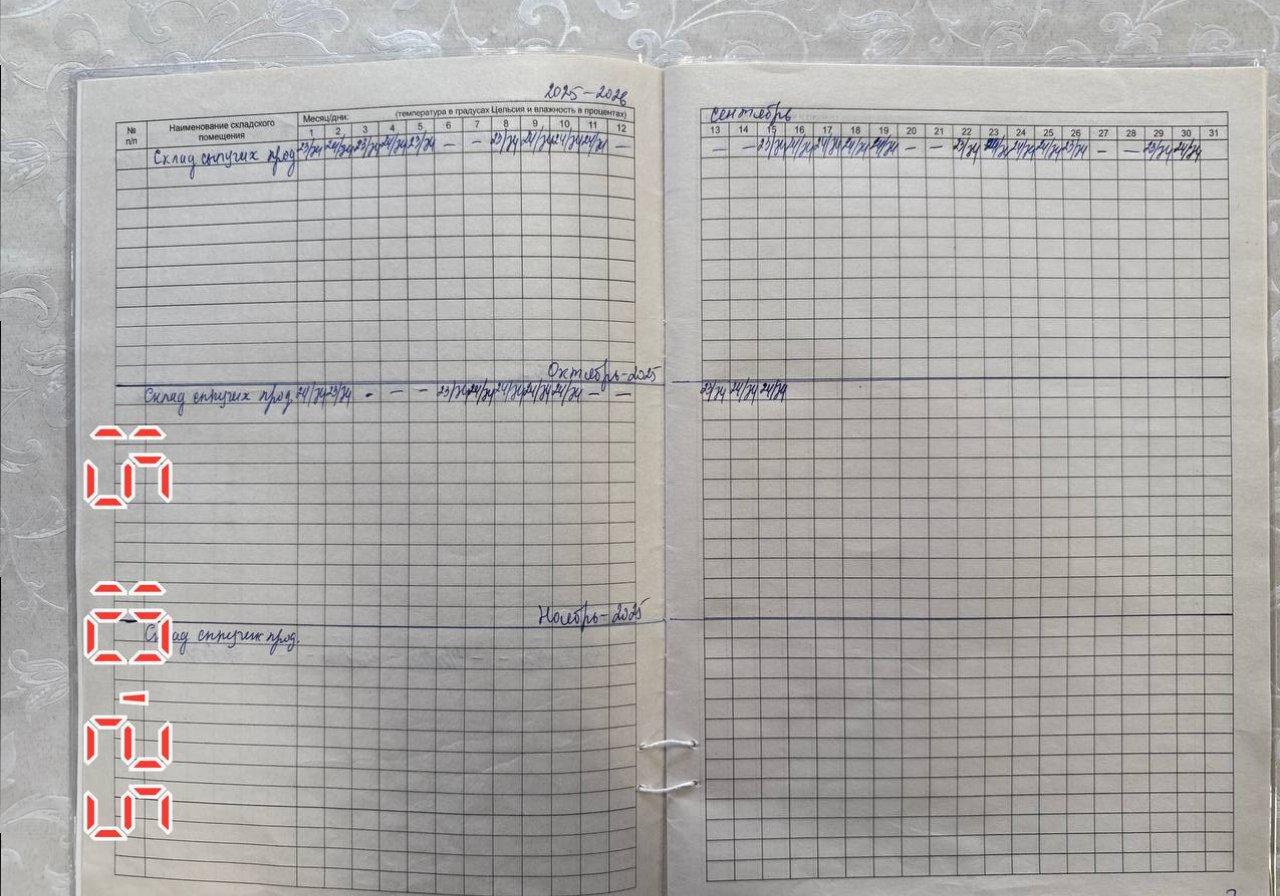 2025-2026
№ п/п
Наименование складского помещения
Месяц/дни:
(температура в градусах Цельсия и влажность в процентах)
сентябрь
1 2 3 4 5 6 7 8 9 10 11 12 13 14 15 16 17 18 19 20 21 22 23 24 25 26 27 28 29 30 31
Склад сыпучих прод. 23/74 24/74 23/74 24/74 23/74 — — 23/74 24/74 24/74 24/74 — — — 23/74 24/74 24/74 24/74 24/74 — — 23/74 24/74 24/74 23/74 — — 23/74 24/74
Октябрь-2025
Склад сыпучих прод. 24/74 23/74 - — — 23/74 24/74 24/74 24/74 24/74 — — 23/74 24/74 24/74
Ноябрь-2025
Склад сыпучих прод.
15 10 '25